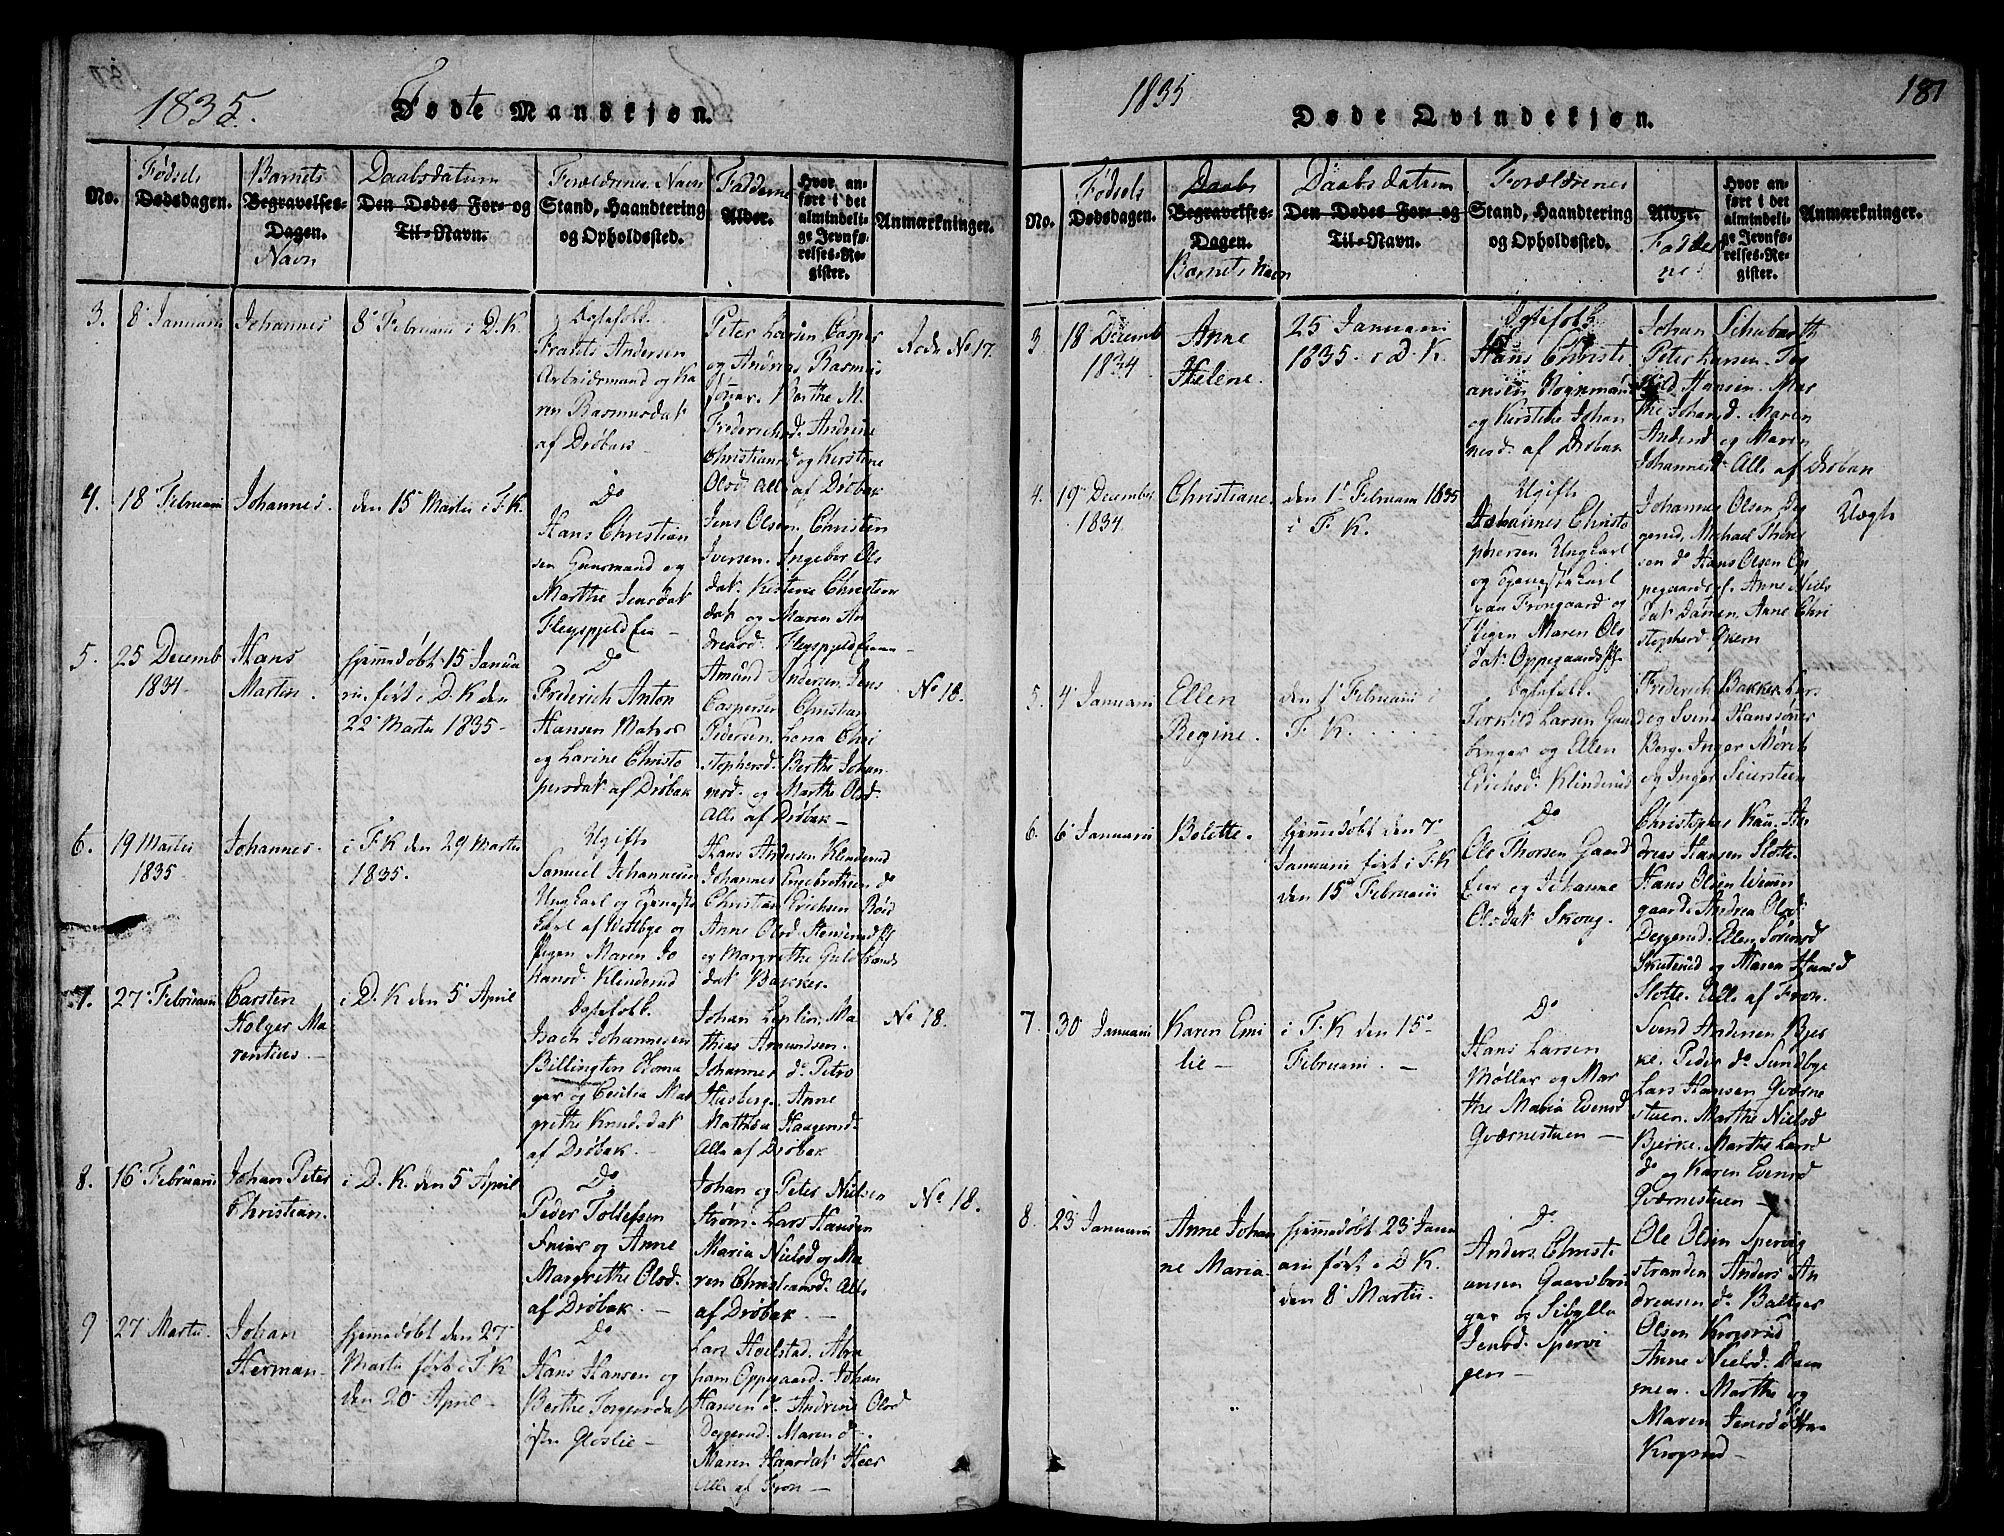 1835.
Födte Mandkjøn.
No.
Fødsels
Dødsdagen.
Barnets
Begravelses-
Dagen.
Navn
Daabsdatum
Den Dødes For- og
Til-Navn.
Forældrenes Navn
Stand, Haandtering
og Opholdssted.
Fadderne
Alder.
Hvor an-
ført i det
almindeli-
ge Jevnfø-
relses-Re-
gister.
Anmærkninger.
3.
8 Januarii
Johannes
8 Februarii i D. K.
Ægtefolk.
Frants Andersen
Arbeidsmand og Ka
ren Rasmusdat
af Drøbak
Peter Larsen Casper
og Andreas Rasmus
Marthe M.
Frederichsd. Andrine
Christiansd og Kerstine
Olsd. Alle af Drøbak
No 17.
4.
18 Februarii
Johannes.
den 15 Martii i F. K.
Do
Hans Christian
sen Huusmand og
Marthe Jensdat
Fleyspjeld Eie -
Jens Olsen. Christen
Iversen. Ingebor Ols
dat. Kistine Christens
dat og Maren An
dreasd. Fleyspjeld Eie
5.
25 Decemb
1834.
Hans
Martin.
hjemedøbt 15 Janua
rii, ført i D. K den
22 Martii 1835 -
Do
Frederich Anton
Hansen Matros
og Larine Christo
persdat. af Drøbak
Amund Andersen. Jens
Caspersen Christian
Pedersen. Lona Chri
stophersd. Berthe Johan
nesd. og Marthe Olsd.
Alle af Drøbak -
No 18.
6.
19 Martii
1835
Johannes.
i F. K den 29 Martii
1835.
Ugifte
Samuel Johannesen
Ungkarl og Tjeneste
Karl af Vestbye og
Pigen Maren Jo
hansd. Klinderud
Hans Andersen Klinderud
Johannes Engebrethsen do
Christian Erichsen
Anne Olsd. Stensrud
og Margrethe Guldbrands
dat Bakker.
7.
27 Februarii
Carsten
Holger Ma
rentius. -
i D. K den 5 April
Ægtefolk.
Isach Johannesen
Billington Skoma
ger og Cecilia Mar
grethe Knudsdat
af Drøbak. -
Johan Leplin. Ma
thias Amundsen.
Johannes do Petro
Husberg. Anne
Mathea Haagensd.
Alle af Drøbak
No 18.
8.
16 Februarii
Johan Peter
Christian.
i D. K. den 5 April
Do
Peder Tollefsen
Feier og Anne
Margrethe Olsd.
af Drøbak. -
Johan og Peter Nielsen
Strøm. Lars Hansen
Maria Nielsd og Ma
ren Christiansd. Alle
af Drøbak. -
No 18.
9
27 Martii.
Johan
Herman -
hjemedøbt den 27
Martii ført i F. K
den 20 April -
Do
Hans Hansen og
Berthe Torgersdat
østre Gloslie -
Lars Hoelstad. Abra
ham Oppegaard. Johan
Hansen do Andrine Olsd
Deggerud. Maren do.
Maren Haarsdat Heer
Alle af Fron -
1835
Døde Qvindekjøn.
181
No.
Fødsels
Dødsdagen.
Daabs
Begravelses-
Dagen.
Barnets Navn
Daabs datum
Den Dødes For- og
Til-Navn.
Forældrenes
Stand, Haandtering
og Opholdssted.
Alder.
Fadder
ne.
Hvor an-
ført i det
almindeli-
ge Jevnfø-
relses-Re-
gister.
Anmærkninger.
3
18 Decemb
1834
Anne
Helene.
25 Januarii
1835. i D. K.
Ægtefolk
Hans Christi
ansen Vognmand
og Kirstine Johan
nesd. af Drøbak
Johan Schubarth
Peter Larsen. Tog
Hansen. Mar
the Johansd. Maren
Andersd og Maren
Johannesd. Alle af Drøbak
4.
19 December
1834.
Christiane
den 1 Februarii 1835
i F. K.
Ugifte
Johannes Christo
phersen Ungkarl
og Tjenestekarl
paa Frongaard og
Pigen Maren Ols
dat. Oppegaards
Johannes Olsen. Deg
gerud, Michael Thor
sen do Hans Olsen Op
pegaards Anne Niels
dat Damen, Anne Chri
stophersd
Uægte
5.
4 Januarii
Ellen
Regine.
den 1 Februarii i
F. K.
Ægtefolk
Torkild Larsen Gaard
bruger og Ellen
Erichsd. Klinderud
Frederich Bakker. Lars
og Svend Hanssøner
Berg. Inger Mørk
og Inger Seiersteen
6.
6 Januarii
Bolette.
hjemedøbt den 7
Januarii ført i F. K
den 15 Februarii
Do
Ole Thorsen Gaard
Eier og Johanne
Olsdat Skoug.
Christopher Kau. An
dreas Hansen Slotte.
Hans Olsen Wemin
gaard. Andrea Olsd.
Deggerud. Ellen Sørensd
Skuterud og Maren Hansd
Slotte. Alle af Fron.
7.
30 Januarii
Karen Emi
lie -
i F. K den 15
Februarii. -
Do
Hans Larsen
Møller og Mar
the Maria Evensd
Qværnestuen -
Svend Andersen Bjer
ke. Peder do Sundbye
Lars Hansen Qværne
stuen. Marthe Nielsd
Bjerke. Marthe Larsd
do og Karen Evensd
Qværnestuen -
8.
23 Januarii
Anne Johan
ne Maria.
hjemedøbt 23 Janu
arii ført i D. K.
den 8 Martii.
Do
Anders Christi
ansen Gaardbru
ger og Sibylla
Jensd. Spervi
gen -
Ole Olsen Spervig
stranden Anders An
dreasen do Baltzer
Olsen Krogsrud
Anne Nielsd. Dam
men. Marthe og
Maren Jensdøttre
Krogsrud -